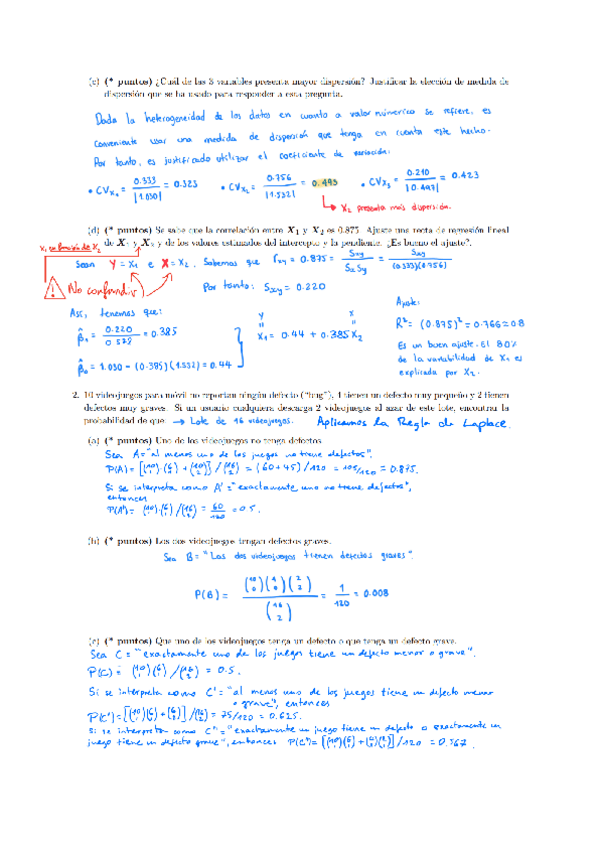 (c) (* puntos) ¿Cuál de las 3 variables presenta mayor dispersión? Justificar la elección de medida de
dispersión que se ha usado para responder a esta pregunta.
Dada la heterogeneidad de los datos en cuanto a valor númerico se refiere, es
conveniente usar una medida de dispersión que tenga en cuenta este hecho.
Por tanto, es justificado utilizar el coeficiente de variación:
• CVx₁ = 0.333 / |1.030| = 0.323 • CVx₂ = 0.756 / |1.532| = 0.493 • CVx₃ = 0.210 / |0.497| = 0.423
↳ X₂ presenta más dispersión.
(d) (* puntos) Se sabe que la correlación entre X₁ y X₂ es 0.875. Ajuste una recta de regresión lineal
de X₁ y X₂ y de los valores estimados del intercepto y la pendiente. ¿Es bueno el ajuste?.
X₁ en función de X₂
Sean Y = X₁ e X = X₂. Sabemos que rxy = 0.875 = Sxy / SxSy = Sxy / (0.333)(0.756)
! No confundir
Por tanto: Sxy = 0.220
Así, tenemos que:
β̂₁ = 0.220 / 0.578 = 0.385
β̂₀ = 1.030 - (0.385)(1.532) = 0.44
Y X
X₁ = 0.44 + 0.385X₂
Ajuste:
R² = (0.875)² = 0.766 ≈ 0.8
Es un buen ajuste. El 80%
de la variabilidad de X₁ es
explicada por X₂.
2. 10 videojuegos para móvil no reportan ningún defecto ("bug"), 4 tienen un defecto muy pequeño y 2 tienen
defectos muy graves. Si un usuario cualquiera descarga 2 videojuegos al azar de este lote, encontrar la
probabilidad de que: → Lote de 16 videojuegos. Aplicamos la Regla de Laplace
(a) (* puntos) Uno de los videojuegos no tenga defectos
Sea A = "al menos uno de los juegos no tiene defectos".
P(A) = [(10 1)(6 1) + (10 2)] / (16 2) = (60+45)/120 = 105/120 = 0.875.
Si se interpreta como A' = "exactamente uno no tiene defectos",
entonces
P(A') = (10 1)(6 1) / (16 2) = 60/120 = 0.5.
(b) (* puntos) Los dos videojuegos tengan defectos graves.
Sea B = "Los dos videojuegos tienen defectos graves".
P(B) = (10 0)(4 0)(2 2) / (16 2) = 1/120 = 0.008
(c) (* puntos) Que uno de los videojuegos tenga un defecto o que tenga un defecto grave.
Sea C = "exactamente uno de los juegos tiene un defecto menor o grave".
P(C) = (10 1)(6 1) / (16 2) = 0.5.
Si se interpreta como C' = "al menos uno de los juegos tiene un defecto menor
o grave", entonces
P(C') = [(10 1)(6 1) + (6 2)] / (16 2) = 75/120 = 0.625.
Si se interpreta como C'' = "exactamente un juego tiene un defecto o exactamente un
juego tiene un defecto grave", entonces P(C'') = [(10 1)(6 1) + (4 1)(2 1)] / 120 = 0.567